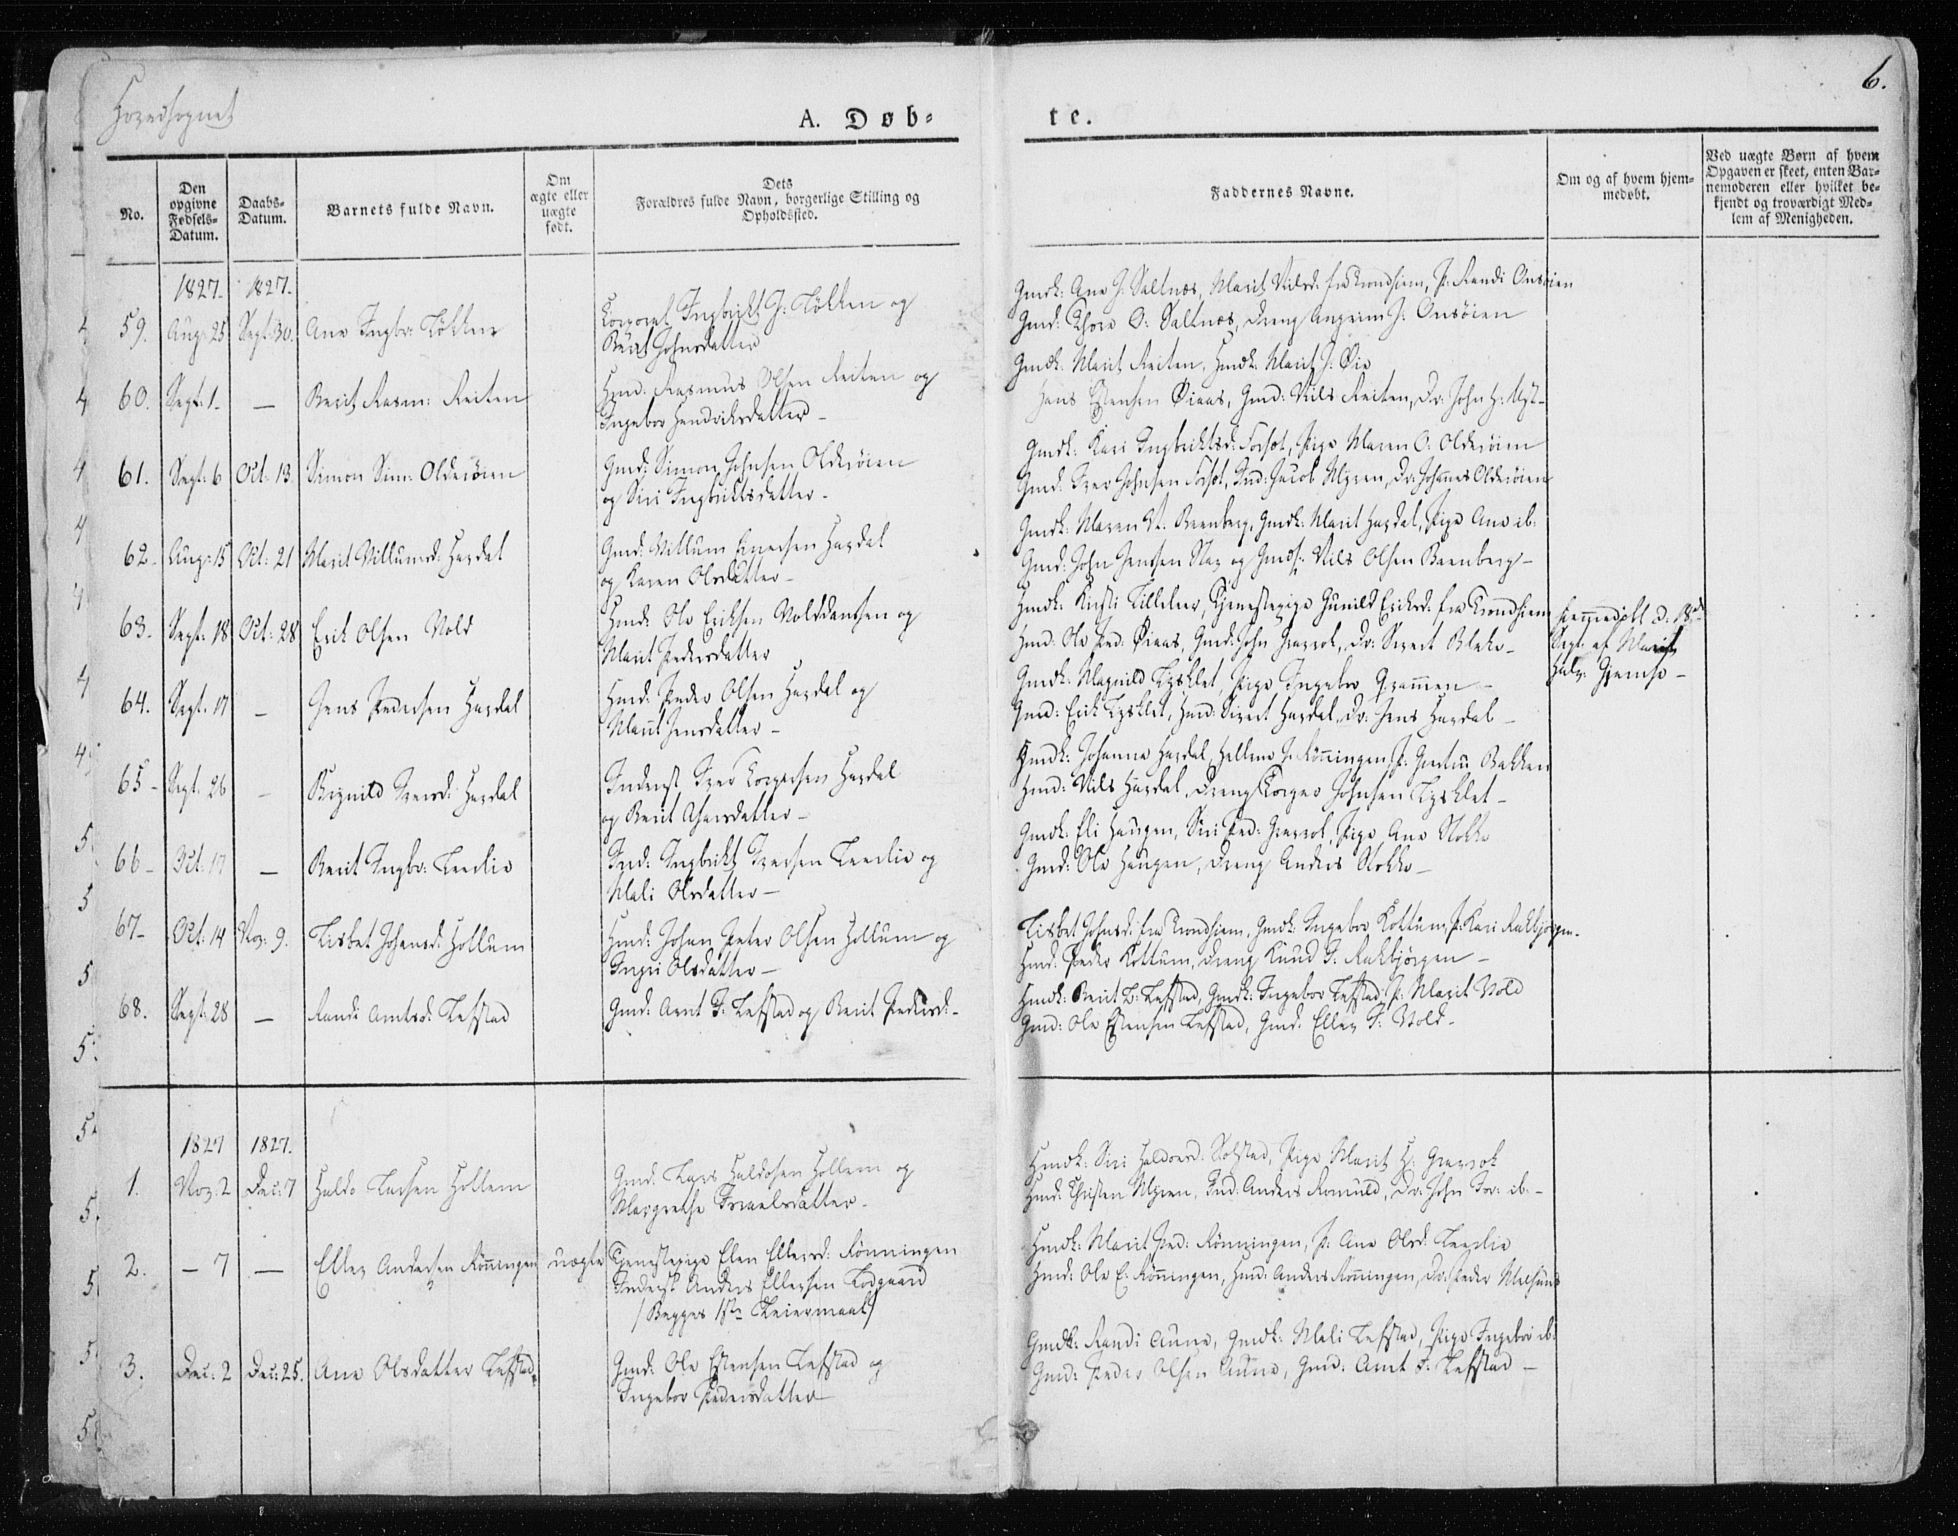 Hovedsognet
6.
A. Døb-
te.
No.
Den opgivne Fødsels-Datum.
Daabs-Datum.
Barnets fulde Navn.
Om ægte eller uægte født.
Dets Forældres fulde Navn, borgerlige Stilling og Opholdssted.
Faddernes Navne.
Om og af hvem hjem-medøbt.
Ved uægte Børn af hvem Opgaven er skeet, enten Bar-nemoderen eller hvilket be-kjendt og troværdigt Med-lem af Menigheden.
1827. 1827.
59. Aug: 25 Sept: 30. Ane Ingbr: Løkken
Corporal Ingbrikt J: Løkken og
Berit Johnsdatter
Gmdk: Ane J: Saltnæs, Marit Nilsd: fra Trondhiem, P: Randi Onsøien
Gmd: Thore O: Saltnæs, Dreng Angrim J: Onsøien
60. Sept: 1. — Berit Rasm: Reiten
Hmd: Rasmus Olsen Reiten og
Ingebor Hendriksdatter —
Gmdk: Marit Reiten, Hmdk: Marit J: Øie
Hans Estensen Øiaas, Gmd: Nils Reiten, Dr: John H: Myr—
61. Sept: 6 Oct: 13 Simon Sim: Olderøien
Gmd: Simon Johnsen Olderøien
og Siri Ingbriktsdatter —
Gmdk: Kari Ingbriktsd: Forsøt, Pige Maren O: Olderøien
Gmd: Iver Johnsen Forsøt, Ind: Jacob Myren, Dr: Johannes Olderøien
62. Aug: 15 Oct: 21 Marit Villumsd: Hardal
Gmd: Villum Hardal
og Karen Olsdatter —
Gmdk: Maren Beenberg, Gmdk: Marit Hardal, Pige Ane ib:
Gmd: John Jensen og Gmds: Nils Olsen Beenberg —
63. Sept: 18 Oct: 28 Erik Olsen Vold
Hmd: Ole Eriksen Volddantsen og
Marit Pedersdatter
Hmdk: Kirsti Lilleleer, Tjenestepige Gunild Eriksd: fra Trondhiem
Hmd: Ole Ped: Øiaas, Gmd: John Gravrok, Dr: Sivert Bleke —
hjemmedøbt d: 18de
Sept. af Marit
Halv: Gjemse —
64. Sept. 17 — Jens Pedersen Hardal
Hmd: Peder Olsen Hardal og
Marit Jensdatter —
Gmdk: Magnild Tysklet, Pige Ingebor Gramen —
Gmd: Erik Tysklet, Hmd: Sivert Hardal, Dr: Jens Hardal —
65 — Sept. 26 — Brynild Iversd: Hardal
Inderst Iver Torgersen Hardal
og Berit —
Gmdk: Johanna Hardal, Hellene J: Rønningen, P: Bakken
Hmd: Nils Hardal, Dreng Torger Johnsen Tysklet —
66 — Oct: 17 — Berit Ingbr: Leerlie
Ind: Ingbrikt Iversen Leerlie og
Mali Olsdatter —
Gmdk: Eli Haugen, Siri Ped: Gravrok, Pige Ane Stokke
Gmd: Ole Haugen, Dreng Anders Stokke —
67 — Oct: 14 Nov: 9. Lisbet Johansd: Hollum
Hmd: Johan Peter Olsen Hollum og
Ingri Olsdatter —
Lisbet Johnsd: fra Trondhiem, Gmdk: Ingebor Kottum, P: Kari Rakbjørgen
Hmd: Peder Kottum, Dreng Knud J: Rakbjørgen —
68. Sept: 28 — Randi Arntsd: Lefstad
Gmd: Arnt J: Lefstad og Berit Pedersd: —
Hmdk: Berit L: Lefstad, Gmdk: Ingebor Lefstad, P: Marit Vold
Gmd: Ole Estensen Lefstad, Gmd: Eller J: Vold —
1827 1827.
1. Nov: 2 Dec: 7 Haldo Larsen Hollem
Gmd: Lars Haldosen Hollem og
Margrethe Israelsdatter —
Hmdk: Siri Haldorsd: Solstad, Pige Marit H: Gravrok
Hmd: Christen Myren, Ind: Anders Romuld, Dr: John Iv: ib: —
2. — 7 — Eller Andersen Rønningen uægte
Tjenestepige Elen Ellersd: Rønningen
Inderst Anders Ellersen Lodgaard
(Begges 1ste Leiermaal)
Hmdk: Marit Ped: Rønningen, P: Ane Olsd: Leerlie
Hmd: Ole E: Rønningen, Hmd: Anders Rønningen, Dr: Peder
3. Dec: 2 Dec: 25. Ane Olsdatter Lefstad
Gmd: Ole Estensen Lefstad og
Ingebor Pedersdatter
Gmdk: Randi Aune, Gmdk: Mali Lefstad, Pige Ingebor ib:
Gmd: Peder Olsen Aune, Gmd: Arnt J: Lefstad —